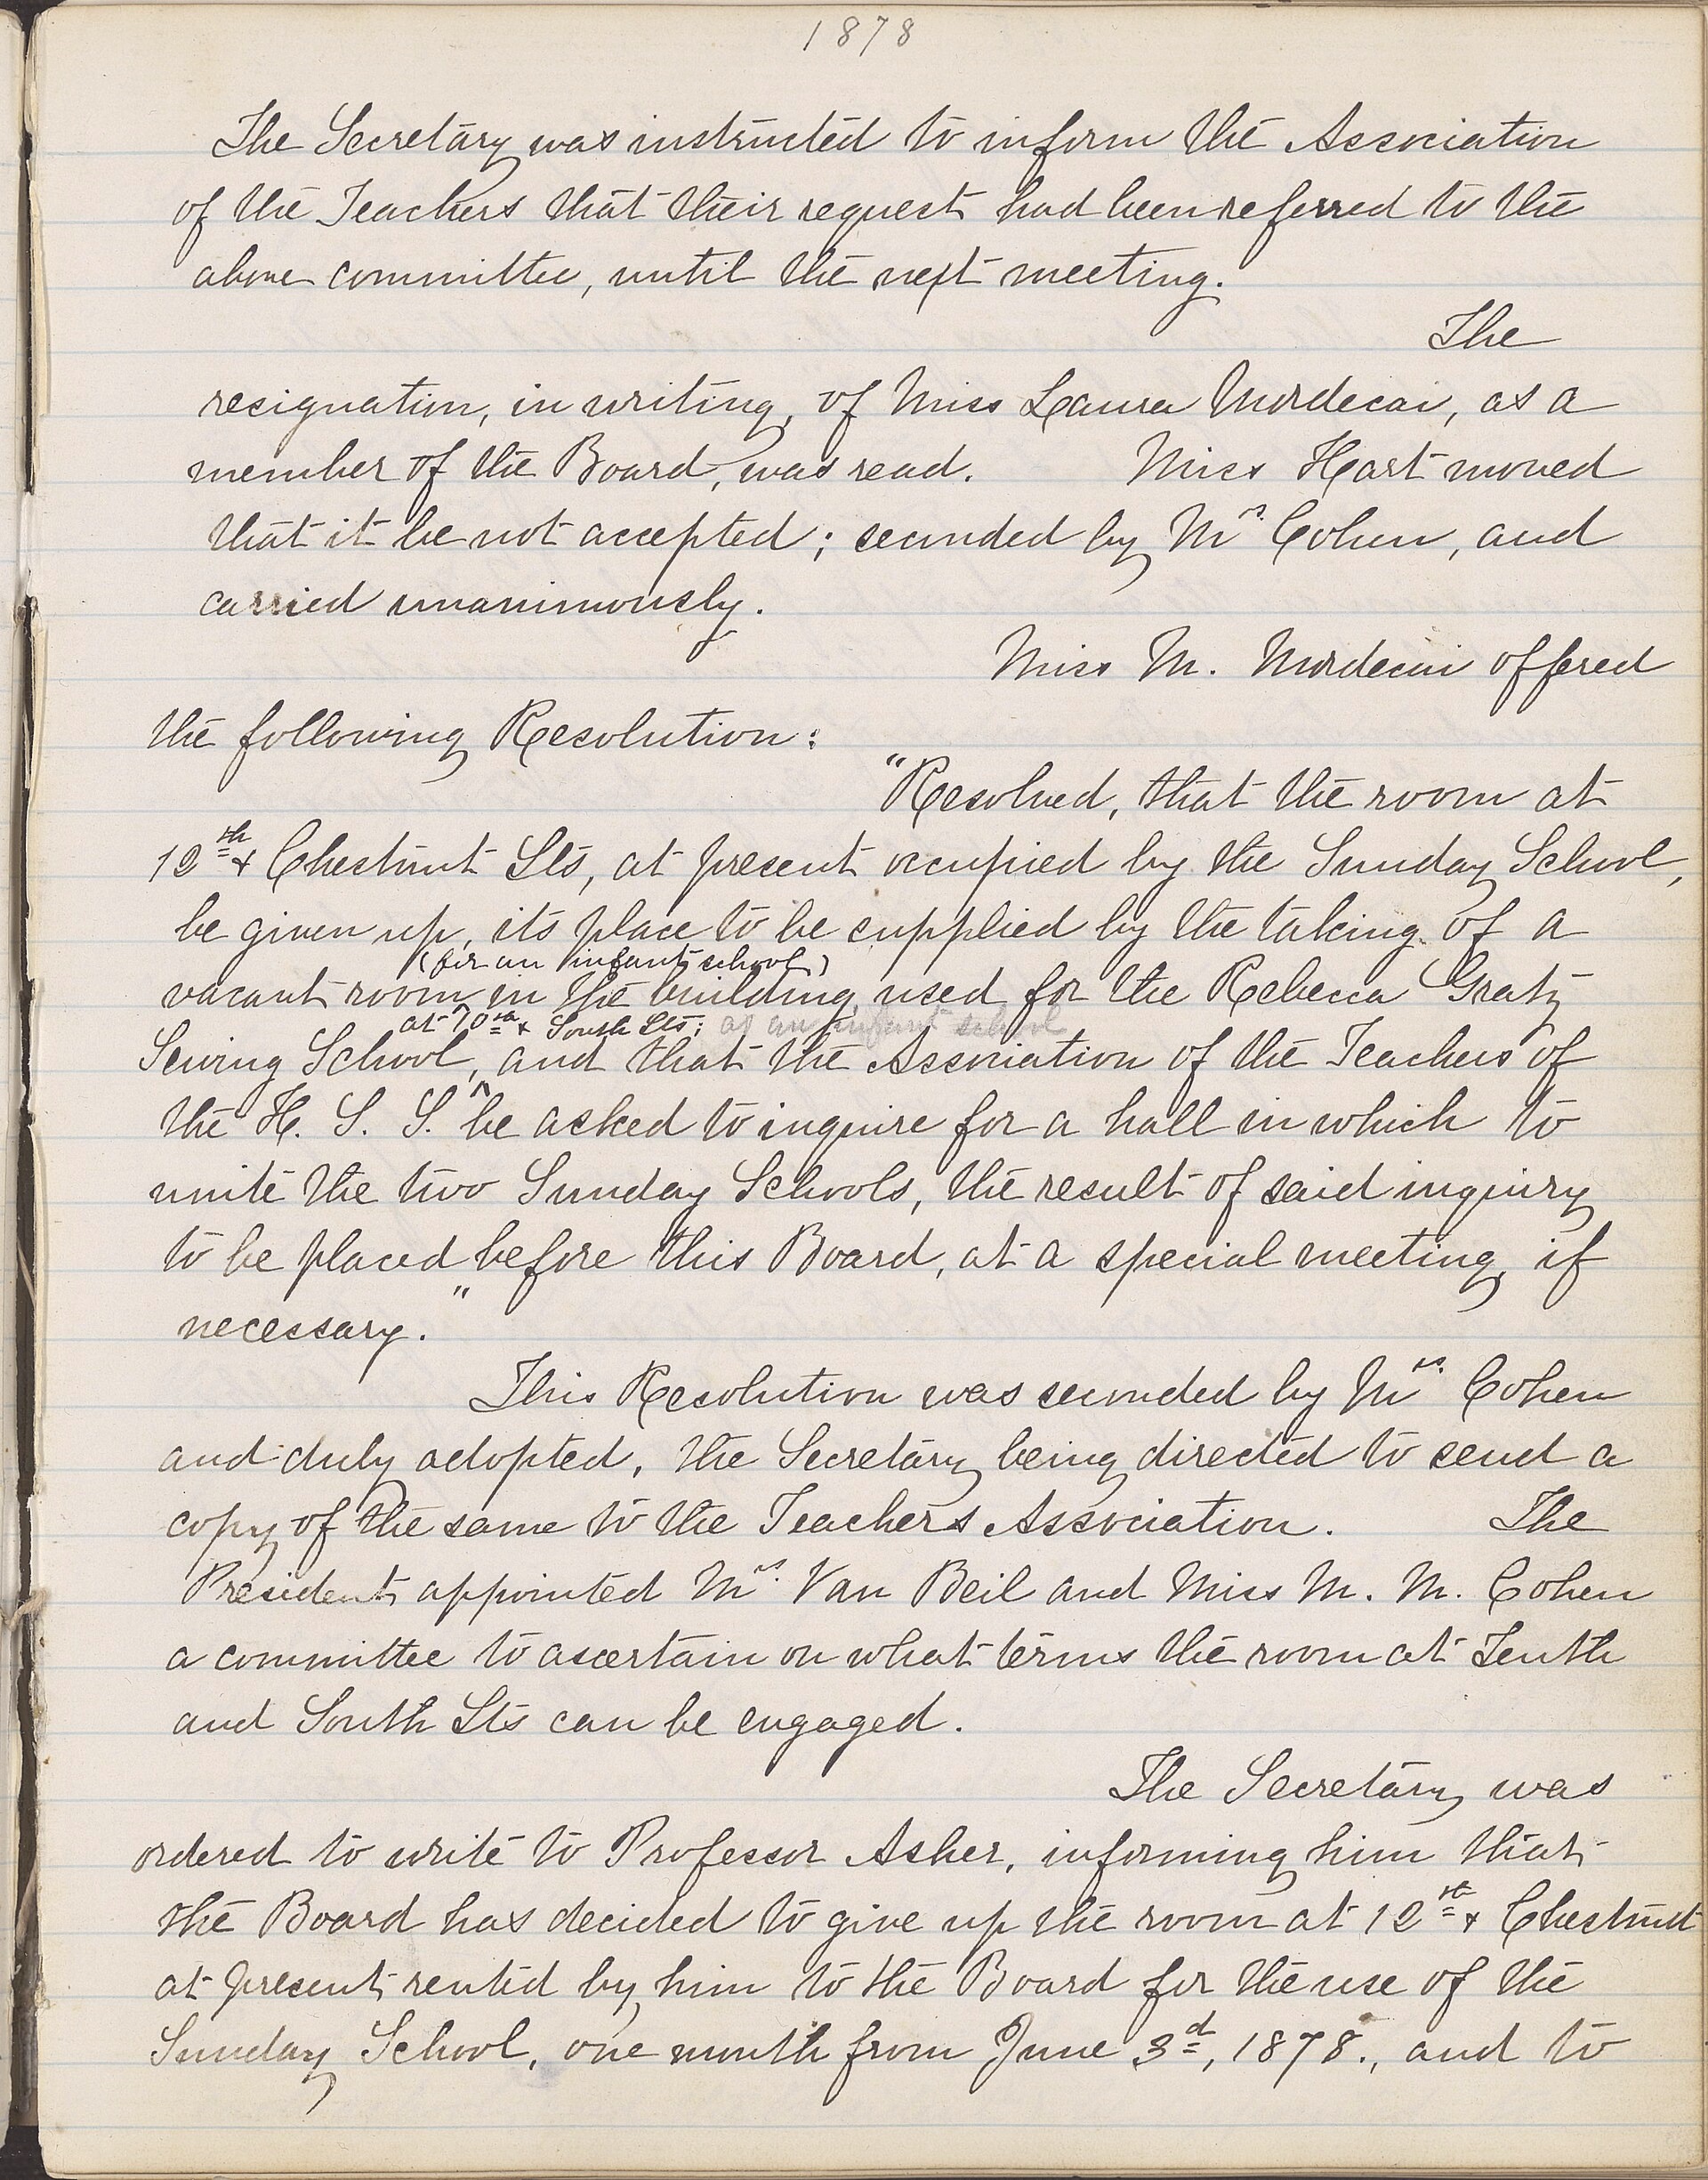 1878
The Secretary was instructed to inform the Association
of the Teachers that their request had been referred to the
above committee, until the next meeting.
The
resignation, in writing, of Miss Laura Mordecai, as a
member of the Board, was read. Miss Hart moved
that it be not accepted; seconded by Mrs. Cohen, and
carried unanimously.
Miss M. Mordecai offered
the following Resolution:
"Resolved, that the room at
12th & Chestnut Sts, at present occupied by the Sunday School,
be given up, its place to be supplied by the taking of a
(for an infant school)
vacant room in the building used for the Rebecca Gratz
at 10th & South Sts; as an infant school
Sewing School, and that the Association of the Teachers of
the H. S. S. be asked to inquire for a hall in which to
unite the two Sunday Schools, the result of said inquiry
to be placed before this Board, at a special meeting, if
necessary."
This Resolution was seconded by Mrs. Cohen
and duly adopted, the Secretary being directed to send a
copy of the same to the Teachers Association. The
President appointed Mrs. Van Beil and Miss M. M. Cohen
a committee to ascertain on what terms the room at Tenth
and South Sts can be engaged.
The Secretary was
ordered to write to Professor Asher, informing him that
the Board has decided to give up the room at 12th & Chestnut
at present rented by him to the Board for the use of the
Sunday School, one month from June 3d, 1878., and to